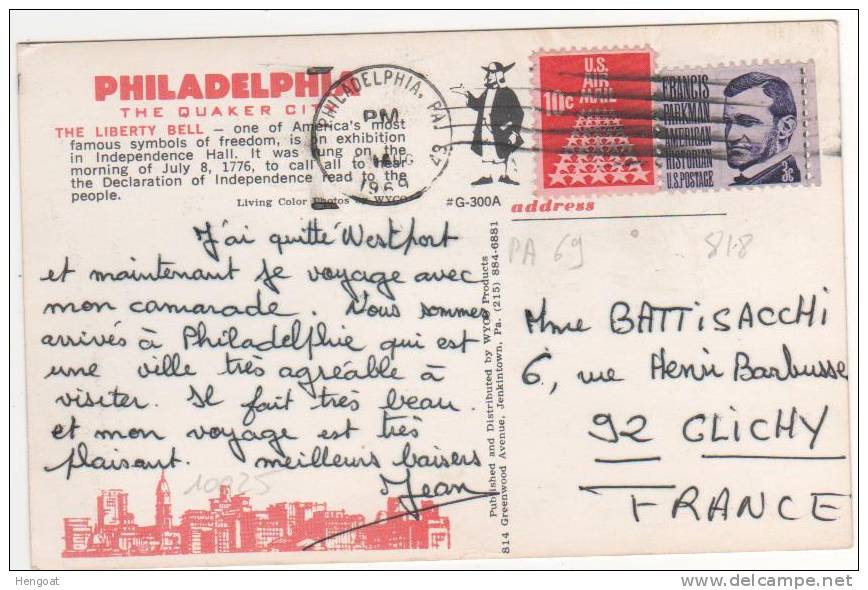 PHILADELPHIA
THE QUAKER CITY
THE LIBERTY BELL — one of America's most
famous symbols of freedom, is on exhibition
in Independence Hall. It was rung on the
morning of July 8, 1776, to call all to hear
the Declaration of Independence read to the
people.
Living Color Photos by WYCO
#G-300A
PHILADELPHIA, PA
PM
1969
U.S.
AIR
MAIL
10c
FRANCIS
PARKMAN
AMERICAN
HISTORIAN
U.S. POSTAGE
3c
address
PA 69
818
J'ai quitté Westport
et maintenant je voyage avec
mon camarade. Nous sommes
arrivés à Philadelphie qui est
une ville très agréable à
visiter. Il fait très beau.
et mon voyage est très
plaisant. meilleurs baisers
Jean
10025
Published and Distributed by WYCO Products
814 Greenwood Avenue, Jenkintown, Pa. (215) 884-6881
Mme BATTISACCHI
6, rue Henri Barbusse
92 CLICHY
FRANCE
Hengoat
www.delcampe.net